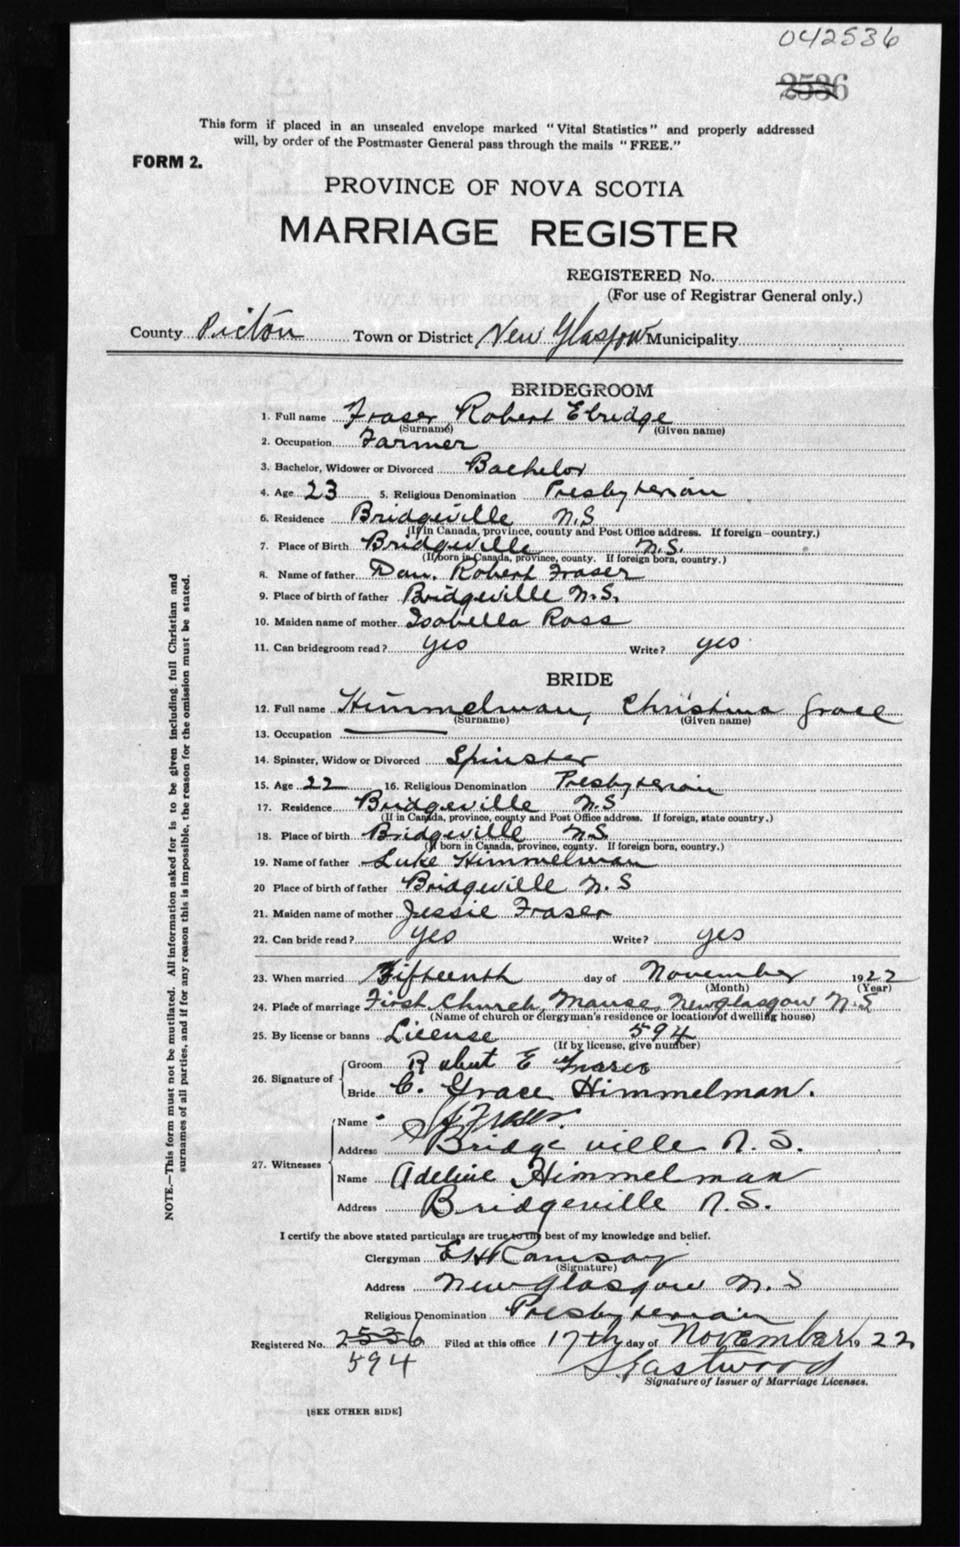 042536
2536
This form if placed in an unsealed envelope marked "Vital Statistics" and properly addressed
will, by order of the Postmaster General pass through the mails "FREE."
FORM 2.
PROVINCE OF NOVA SCOTIA
MARRIAGE REGISTER
REGISTERED No.
(For use of Registrar General only.)
County Pictou Town or District New Glasgow Municipality
BRIDEGROOM
1. Full name Fraser Robert Elridge
(Surname) (Given name)
2. Occupation Farmer
3. Bachelor, Widower or Divorced Bachelor
4. Age 23 5. Religious Denomination Presbyterian
6. Residence Bridgeville N.S
(If in Canada, province, county and Post Office address. If foreign—country.)
7. Place of Birth Bridgeville N.S.
(If born in Canada, province, county. If foreign born, country.)
8. Name of father Dan. Robert Fraser
9. Place of birth of father Bridgeville N.S.
10. Maiden name of mother Isabella Ross
11. Can bridegroom read? yes Write? yes
BRIDE
12. Full name Himmelman, Christina Grace
(Surname) (Given name)
13. Occupation
14. Spinster, Widow or Divorced Spinster
15. Age 22 16. Religious Denomination Presbyterian
17. Residence Bridgeville N.S
(If in Canada, province, county and Post Office address. If foreign, state country.)
18. Place of birth Bridgeville N.S
(If born in Canada, province, county. If foreign born, country.)
19. Name of father Luke Himmelman
20 Place of birth of father Bridgeville N.S
21. Maiden name of mother Jessie Fraser
22. Can bride read? yes Write? yes
23. When married Fifteenth day of November 1922
(Month) (Year)
24. Place of marriage First Church, Manse, New Glasgow N.S
(Name of church or clergyman's residence or location of dwelling house)
25. By license or banns License 594
(If by license, give number)
26. Signature of
Groom Robert E Fraser
Bride C. Grace Himmelman.
27. Witnesses
Name Fraser.
Address Bridgeville N.S.
Name Adeline Himmelman
Address Bridgeville N.S.
I certify the above stated particulars are true to the best of my knowledge and belief.
Clergyman E H Ramsay
(Signature)
Address New Glasgow N.S
Religious Denomination Presbyterian
Registered No. 2536 Filed at this office 17th day of November 1922
594
S Eastwood
Signature of Issuer of Marriage Licenses.
[SEE OTHER SIDE]
NOTE.—This form must not be mutilated. All information asked for is to be given including full Christian and
surnames of all parties, and if for any reason this is impossible, the reason for the omission must be stated.